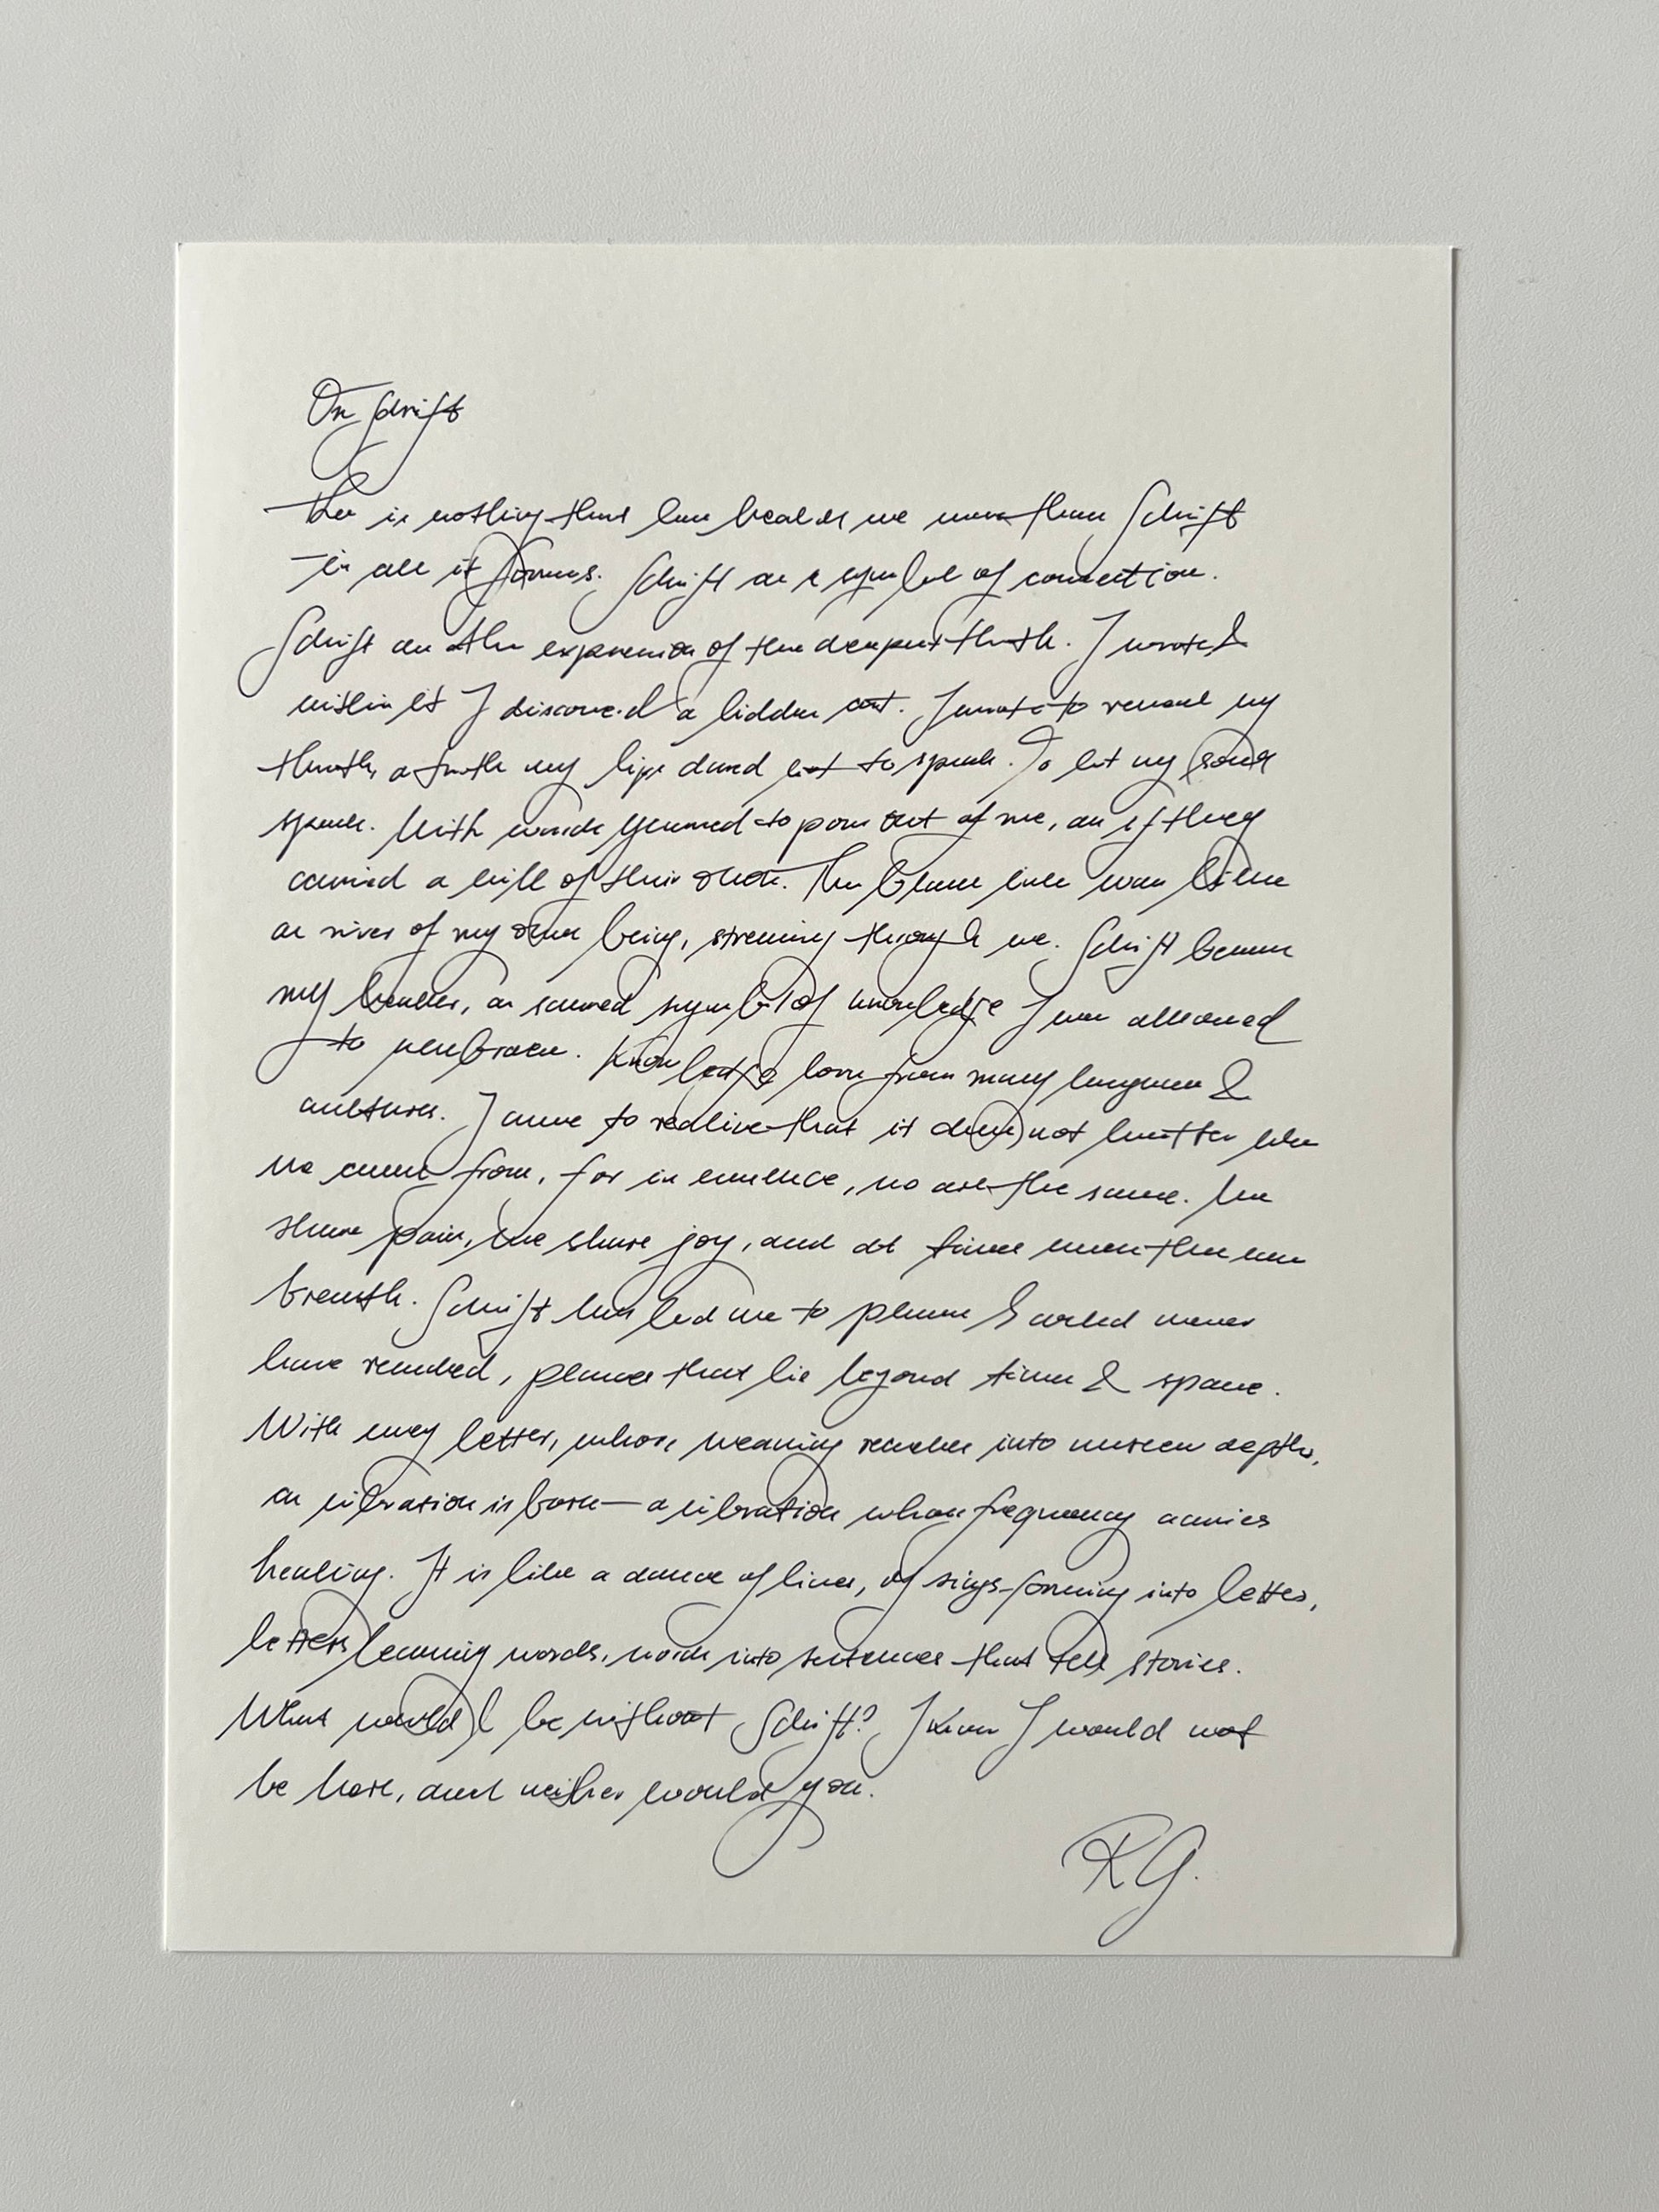 On Schrift
There is nothing that has healed me more than Schrift
in all its forms. Schrift as a symbol of connection.
Schrift as the expression of the deepest truth. I wrote &
within it I discovered a hidden art. I wrote to reveal my
truth, a truth my lips dared not to speak. To let my soul
speak. With words yearned to pour out of me, as if they
carried a will of their own. The black line was like
a river of my own being, streaming through me. Schrift became
my healer, a sacred symbol of knowledge I was allowed
to embrace. Knowledge born from many languages &
cultures. I came to realize that it does not matter where
we come from, for in essence, we are the same. We
share pain, we share joy, and at times even the same
breath. Schrift has led me to places I would never
have reached, places that lie beyond time & space.
With every letter, whose meaning reaches into unseen depths,
a vibration is born — a vibration whose frequency carries
healing. It is like a dance of lines, of sings forming into letters,
letters becoming words, words into sentences that tell stories.
What would I be without Schrift? I know I would not
be here, and neither would you.
RG.